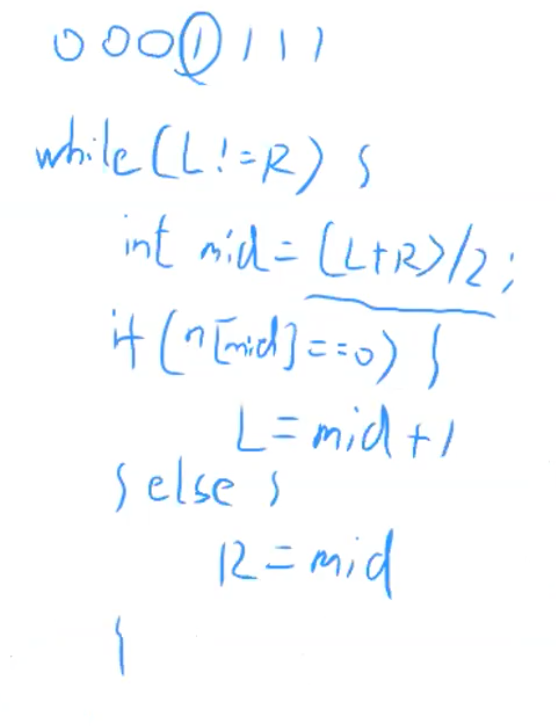 0 0 0 1 1 1 1
while (L != R) {
int mid = (L+R)/2;
if (n[mid] == 0) {
L = mid + 1
} else {
R = mid
}